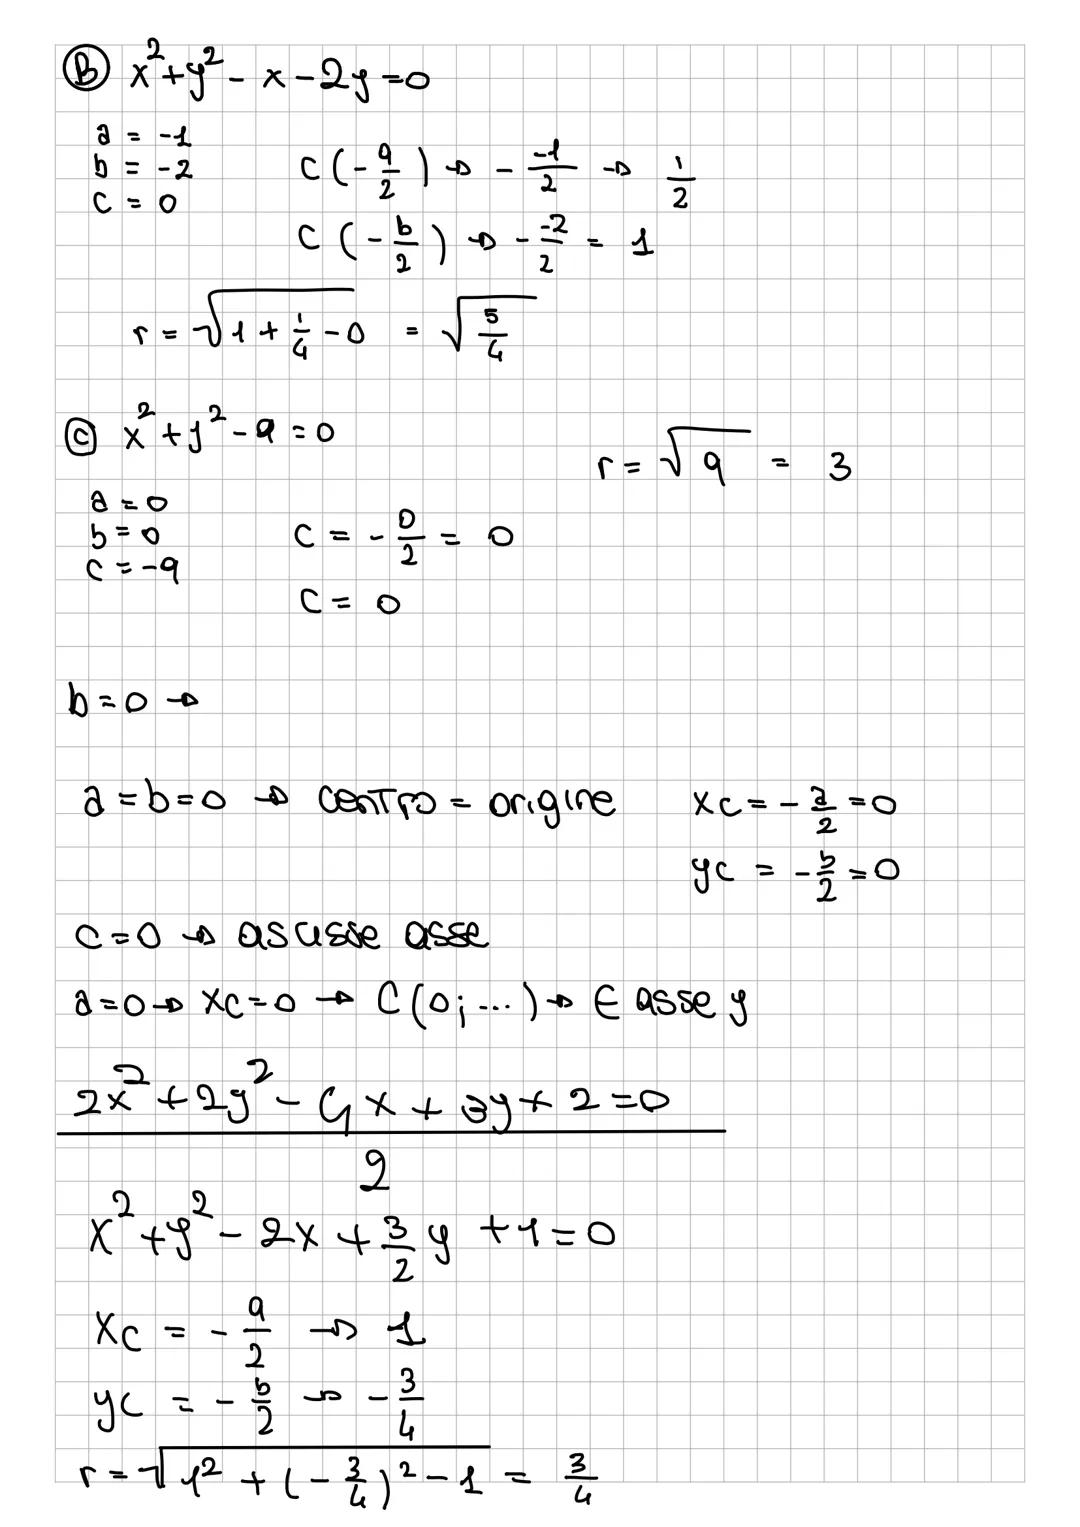 Ⓑ x²+y²-x-2y=0
a = -1
b = -2
c = 0
C(-a/2) → - -1/2 → 1/2
C(-b/2) → - -2/2 = 1
r = √(1+1/4-0) = √(5/4)
ⓒ x²+y²-9=0
r = √9 = 3
a=0
b=0
c=-9
C = -0/2 = 0
C = 0
b=0 →
a=b=0 → centro = origine
xc = -a/2 = 0
yc = -b/2 = 0
c=0 → ascisse asse
a=0 → xc=0 → C(0;...) → ∈ asse y
2x²+2y²-4x+3y+2=0
2
x²+y²-2x+3/2 y+1=0
xc = -a/2 → 1
yc = -b/2 → -3/4
r = √(1²+(-3/4)²-1) = 3/4